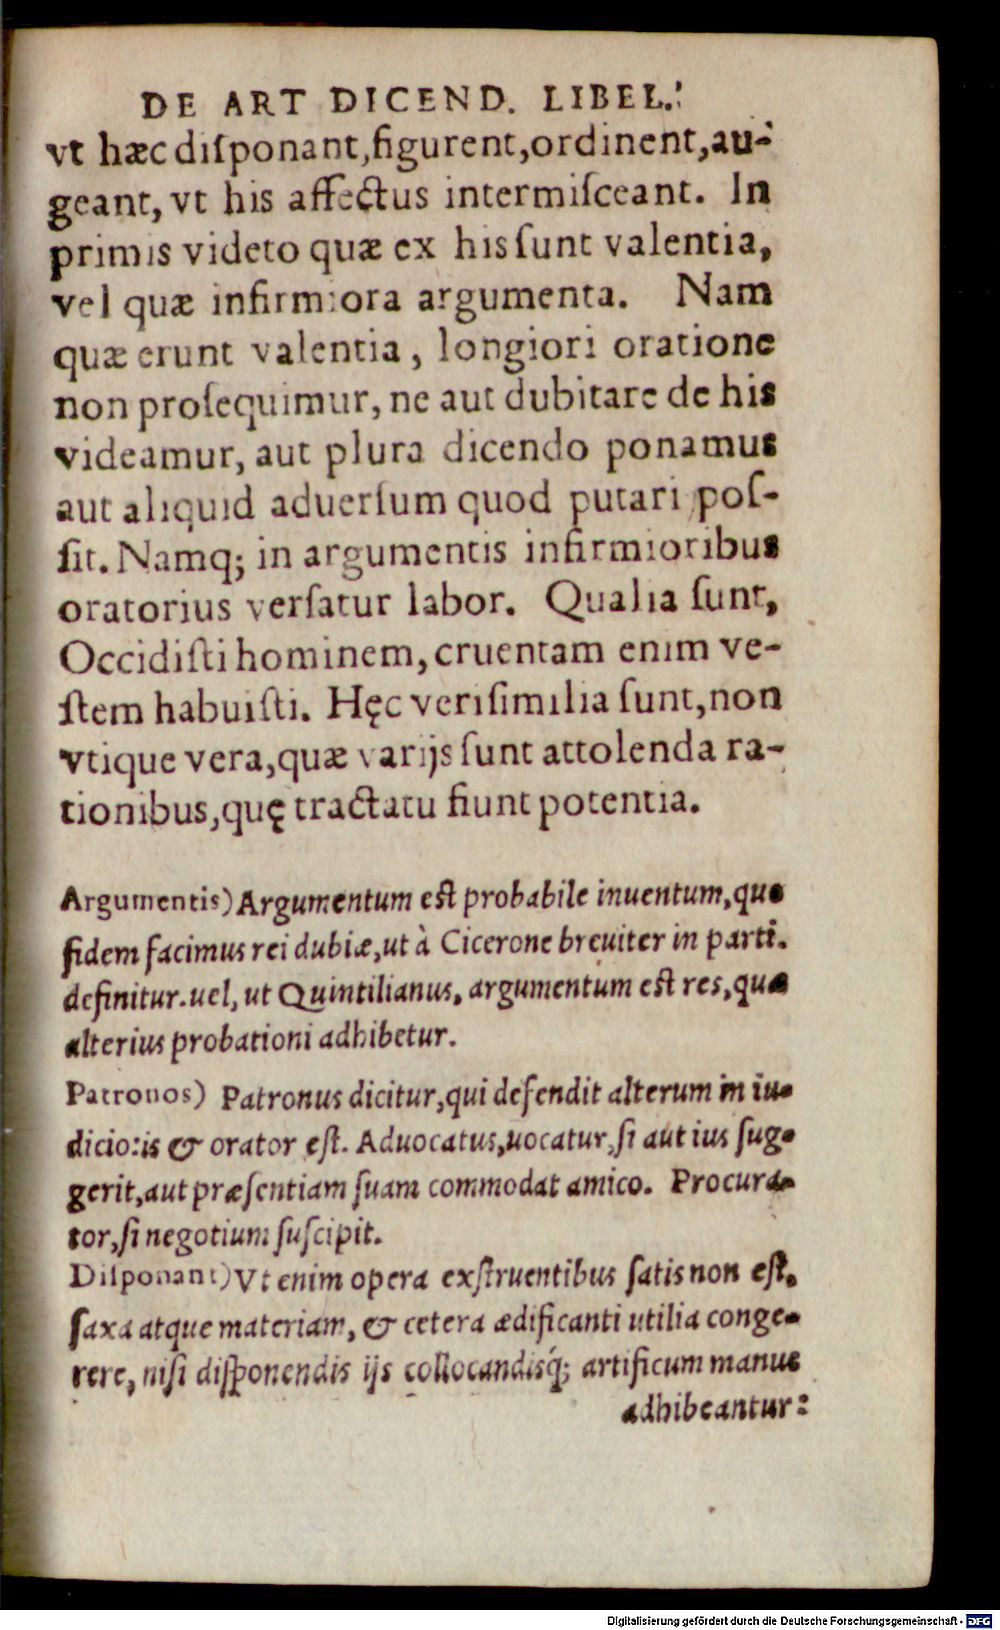 DE ART DICEND. LIBEL.
vt hæc diſponant, figurent, ordinent, au-
geant, vt his affectus intermiſceant. In
primis videto quæ ex his ſunt valentia,
vel quæ infirmiora argumenta. Nam
quæ erunt valentia, longiori oratione
non proſequimur, ne aut dubitare de his
videamur, aut plura dicendo ponamus
aut aliquid aduerſum quod putari poſ-
ſit. Namq; in argumentis infirmioribus
oratorius verſatur labor. Qualia ſunt,
Occidiſti hominem, cruentam enim ve-
ſtem habuiſti. Hęc veriſimilia ſunt, non
vtique vera, quæ varijs ſunt attolenda ra-
tionibus, quę tractatu fiunt potentia.
Argumentis) Argumentum eſt probabile inuentum, quo
fidem facimus rei dubiæ, ut à Cicerone breuiter in parti.
definitur. uel, ut Quintilianus, argumentum eſt res, quæ
alterius probationi adhibetur.
Patronos) Patronus dicitur, qui defendit alterum in iu-
dicio: is & orator eſt. Aduocatus, uocatur, ſi aut ius ſug-
gerit, aut præſentiam ſuam commodat amico. Procura-
tor, ſi negotium ſuſcipit.
Diſponant) Vt enim opera exſtruentibus ſatis non eſt,
ſaxa atque materiam, & cetera ædificanti utilia conge-
rere, niſi diſponendis ijs collocandisq́; artificum manus
adhibeantur:
Digitalisierung gefördert durch die Deutsche Forschungsgemeinschaft - DFG